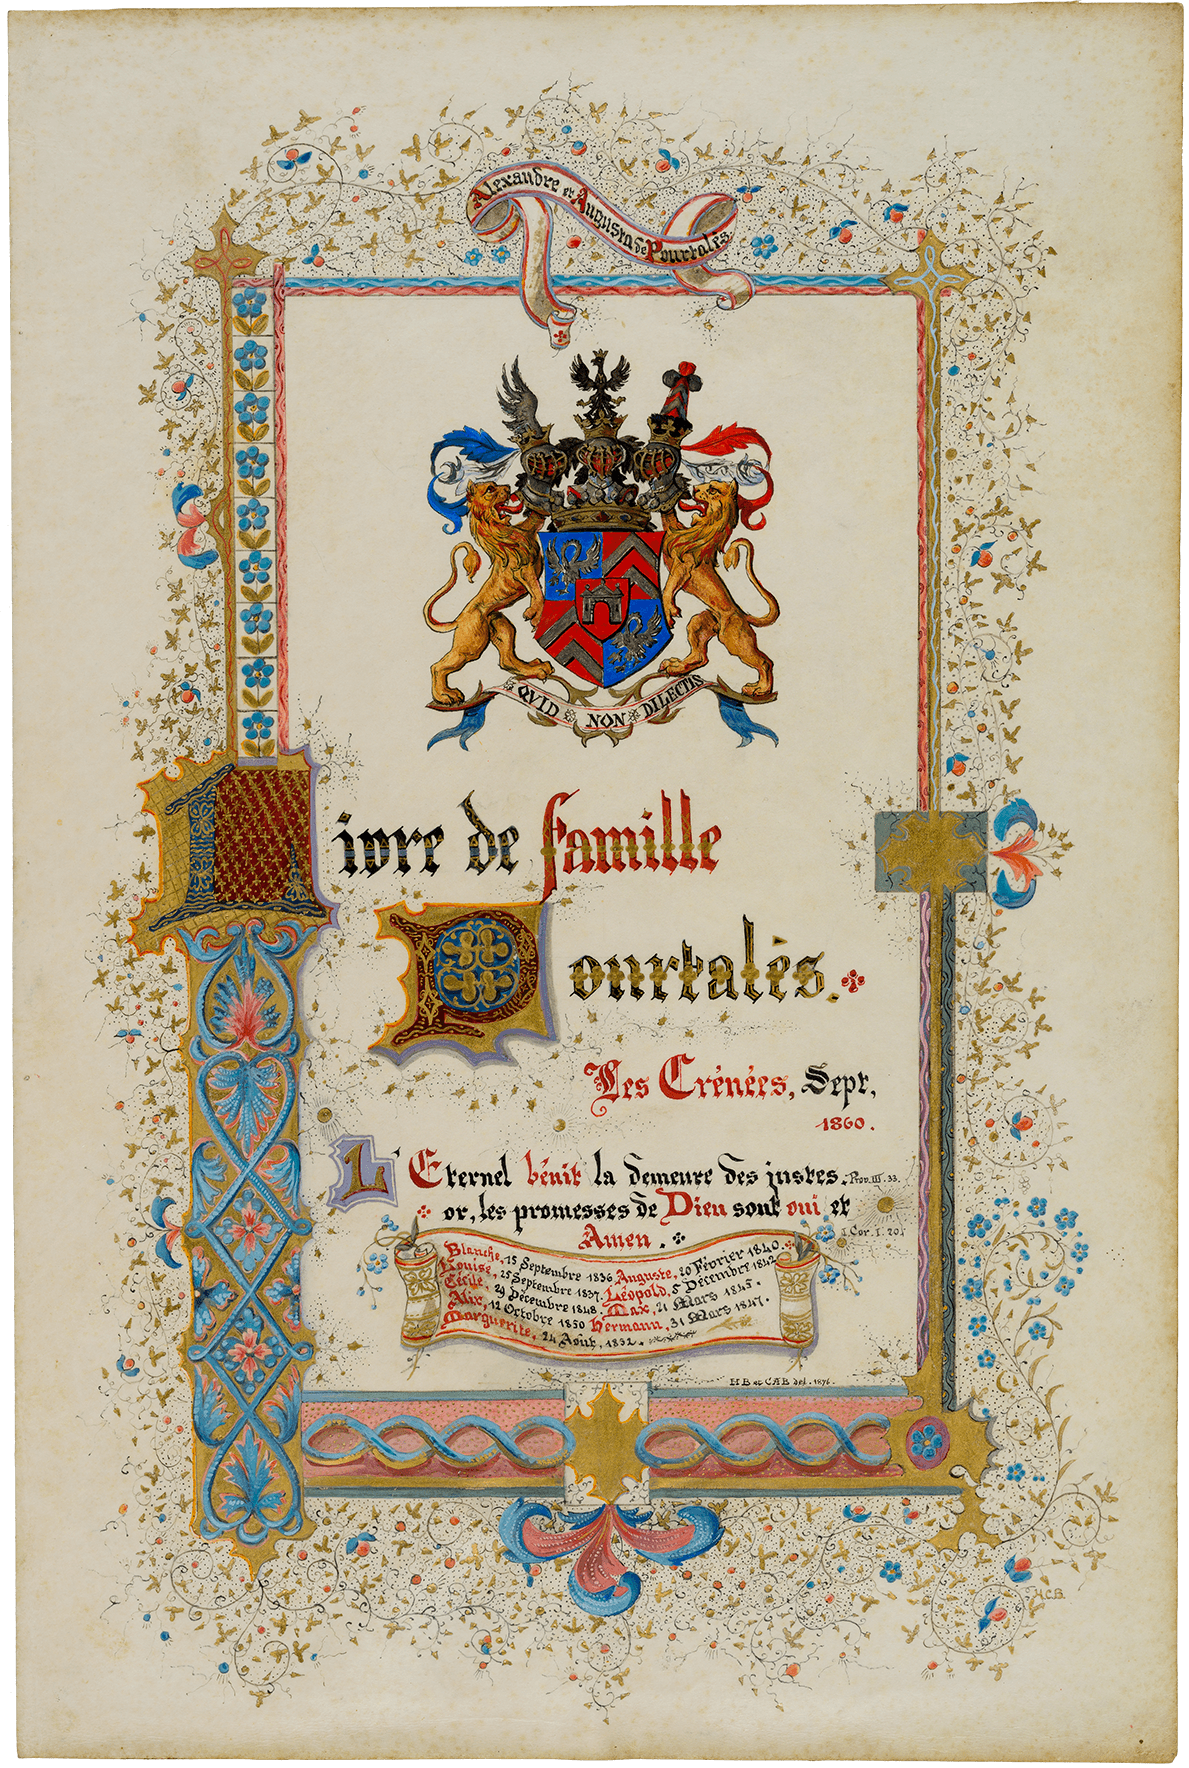 Alexandre et Augusta de Pourtalès
QVID NON DILECTIS
Livre de famille
Pourtalès.
Les Crénées, Sept,
1860.
L'Eternel bénit la demeure des justes. Prov. III. 33.
or, les promesses de Dieu sont oui et
Amen. I Cor. I. 20.
Blanche, 15 Septembre 1836. Auguste, 20 Février 1840.
Louise, 25 Septembre 1837. Léopold, 5 Décembre 1842.
Cécile, 29 Décembre 1848. Max, 21 Mars 1845.
Alix, 12 Octobre 1850 Hermann, 31 Mars 1847.
Marguerite, 24 Août, 1852.
HB et CAB del. 1876.
H.C.B.